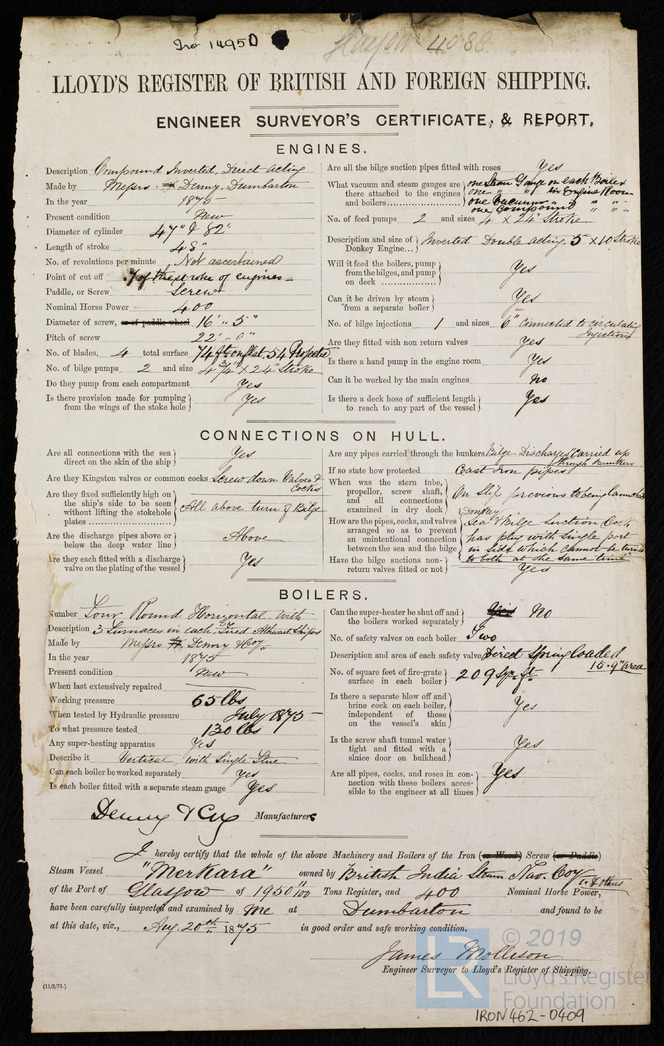 Iro 14950
Glasgow 4088
LLOYD'S REGISTER OF BRITISH AND FOREIGN SHIPPING.
ENGINEER SURVEYOR'S CERTIFICATE, & REPORT,
ENGINES.
Description Compound Inverted Direct acting
Made by Messrs Denny, Dumbarton
In the year 1875
Present condition New
Diameter of cylinder 47" & 82"
Length of stroke 48"
No. of revolutions per minute Not ascertained
Point of cut off of the stroke of engines
Paddle, or Screw Screw
Nominal Horse Power 400
Diameter of screw, or of paddle wheel 16' " 5"
Pitch of screw 22' " 0"
No. of blades, 4 total surface 74 ft on flat. 54 Projected
No. of bilge pumps 2 and size 4 3/4" x 24" Stroke
Do they pump from each compartment Yes
Is there provision made for pumping from the wings of the stoke hole Yes
Are all the bilge suction pipes fitted with roses Yes
What vacuum and steam gauges are there attached to the engines and boilers
one Steam Gauge on each Boiler
one " " in Engine Room
one Vacuum " " "
one Compound " " "
No. of feed pumps 2 and sizes 4" x 24" Stroke
Description and size of Donkey Engine... Inverted Double acting 5 x 10 Stroke
Will it feed the boilers, pump from the bilges, and pump on deck Yes
Can it be driven by steam from a separate boiler Yes
No. of bilge injections 1 and sizes 6" connected to circulating
Injections
Are they fitted with non return valves Yes
Is there a hand pump in the engine room Yes
Can it be worked by the main engines No
Is there a deck hose of sufficient length to reach to any part of the vessel Yes
CONNECTIONS ON HULL.
Are all connections with the sea direct on the skin of the ship Yes
Are they Kingston valves or common cocks Screw down Valves & Cocks
Are they fixed sufficiently high on the ship's side to be seen without lifting the stokehole plates All above turn of Bilge
Are the discharge pipes above or below the deep water line Above
Are they each fitted with a discharge valve on the plating of the vessel Yes
Are any pipes carried through the bunkers Bilge Discharges carried up
through bunkers
If so state how protected Cast Iron pipes
When was the stern tube, propellor, screw shaft, and all connections examined in dry dock On Slip previous to being launched
How are the pipes, cocks, and valves arranged so as to prevent an unintentional connection between the sea and the bilge
Donkey
Sea & Bilge suction Cock
has plug with single port
in side which cannot be turned
to both at the same time
Have the bilge suctions non-return valves fitted or not Yes
BOILERS.
Number Four Round Horizontal with
Description 3 Furnaces in each fired Athwart Ships
Made by Messrs Denny & Coy.
In the year 1875
Present condition New
When last extensively repaired
Working pressure 65 lbs
When tested by Hydraulic pressure July 1875
To what pressure tested 130 lbs
Any super-heating apparatus Yes
Describe it Vertical with Single Flue
Can each boiler be worked separately Yes
Is each boiler fitted with a separate steam gauge Yes
Can the super-heater be shut off and the boilers worked separately Yes No
No. of safety valves on each boiler Two
Description and area of each safety valve Direct Spring loaded
15.9" area
No. of square feet of fire-grate surface in each boiler 209 Sqr. ft.
Is there a separate blow off and brine cock on each boiler, independent of those on the vessel's skin Yes
Is the screw shaft tunnel water tight and fitted with a sluice door on bulkhead Yes
Are all pipes, cocks, and roses in connection with these boilers accessible to the engineer at all times Yes
Denny & Coy Manufacturers
I hereby certify that the whole of the above Machinery and Boilers of the Iron (or Wood) Screw (or Paddle)
Steam Vessel "Merkara" owned by British India Steam Nav. Coy & others
of the Port of Glasgow of 1950 "/100 Tons Register, and 400 Nominal Horse Power,
have been carefully inspected and examined by me at Dumbarton and found to be
at this date, viz., Aug. 20th 1875 in good order and safe working condition.
James Mollison
Engineer Surveyor to Lloyd's Register of Shipping.
(11/3/75.)
LR © 2019
Lloyd's Register
Foundation
IRON462-0409